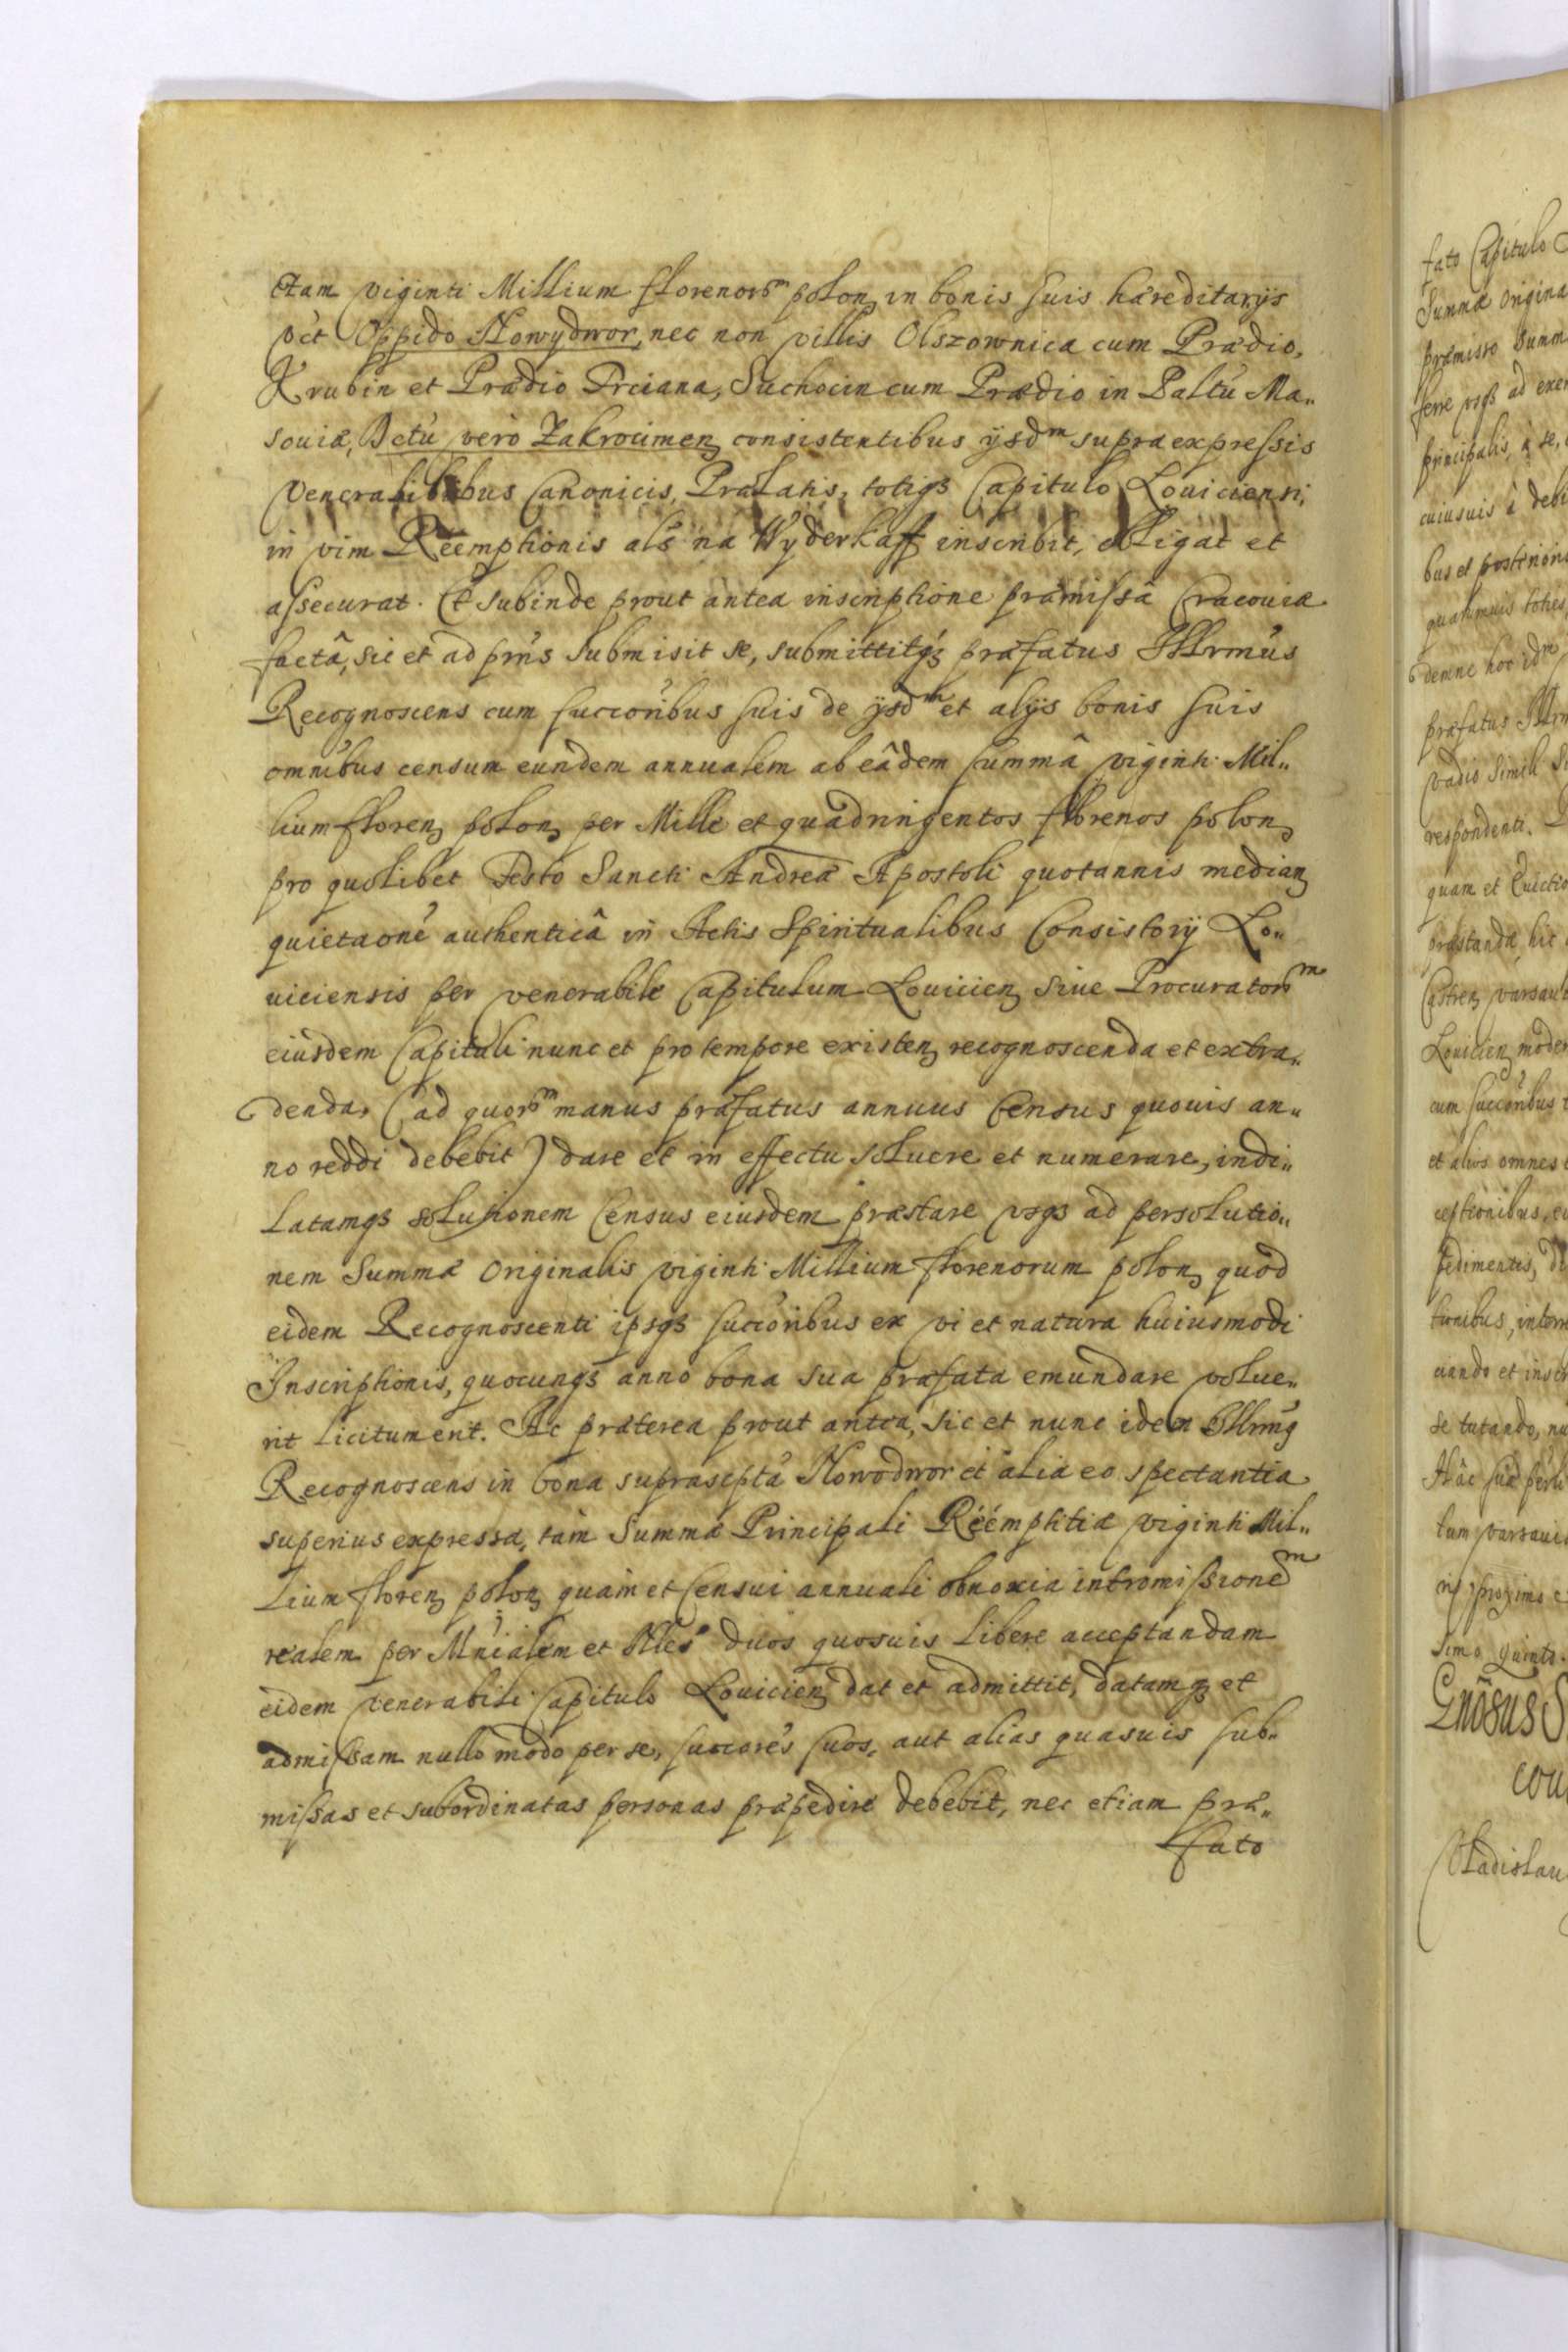 ctam viginti Millium florenorum polon in bonis suis hæreditarijs
vct Oppido Nowydwor, nec non villis Olszownica cum Prædio,
Krubin et Prædio Trciana, Suchocin cum Prædio in Paltu Ma„
souiæ, Dctu vero Zakrocimen consistentibus ijsdm supra expressis
Venerabilibus Canonicis, Prælatis, totiqꝫ Capitulo Louiciensi,
in vim Réemptionis als na Wyderkaff inscribit, obligat et
assecurat. Et subinde prout antea inscriptione præmissâ Cracouiæ
factâ, sic et ad prns submisit se, submittitqꝫ præfatus Illrmus
Recognoscens cum succoribus suis de ijsdm et alijs bonis suis
omnibus censum eundem annualem ab eâdem summâ viginti Mil„
lium floren polon per Mille et quadringentos florenos polon
pro quolibet Festo Sancti Andreæ Apostoli quotannis median
quietaone authenticâ in Actis Spiritualibus Consistorij Lo„
uiciensis per venerabile Capitulum Louicien siue Procuratorm
eiusdem Capituli nunc et pro tempore existen recognoscenda et extra„
denda, (ad quorm manus præfatus annuus Census quouis an„
no reddi debebit) dare et in effectu soluere et numerare, indi„
latamqꝫ solutionem Census eiusdem præstare vsqꝫ ad persolutio„
nem Summæ Originalis viginti Millium florenorum polon quod
eidem Recognoscenti ipsqꝫ succoribus ex vi et natura huiusmodi
Inscriptionis, quocunqꝫ anno bona sua præfata emundare volue„
rit licitum erit. Ac præterea prout antea, sic et nunc idem Illrmus
Recognoscens in bona suprascpta Nowodwor et alia eo spectantia
superius expressa, tam Summæ Principali Réémptitiæ viginti Mil„
lium floren polon quam et Censui annuali obnoxia intromissionem
realem per Mnialem et Nles duos quosuis libere acceptandam
eidem venerabili Capitulo Louicien dat et admittit, datamqꝫ et
admissam nullo modo per se, succores suos, aut alias quasuis sub„
missas et subordinatas personas præpedire debebit, nec etiam præ„
fato
fato Capitulo
Summæ Origina
præmisso Summ
ferre vsqꝫ ad exe
principalis, à se,
cuiusuis à debi
bus et posteriori
quatumuis toties
demne hoc idm
præfatus Illrm
vadio simili
respondenti.
quam et Euictio
præstanda, hic
Castren varsau
Louicien moder
cum succoribus
et alios omnes
ceptionibus, e
pedimentis, d
tionibus, inter
ciando et inscr
se tutando, nu
Hâc suâ
tum varsauie
proximo
simo quinto.
Gnosus S
cou
Vladislau